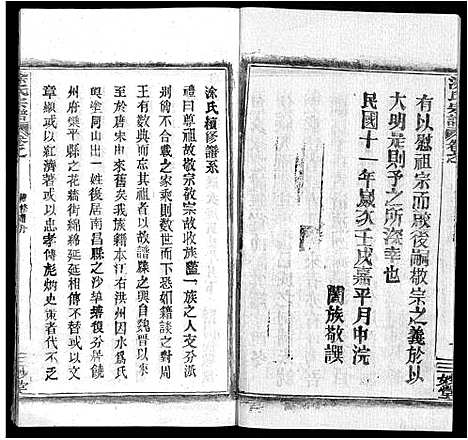 有以慰祖宗而啟後嗣敬宗之義於以
大明是則予之所深幸也
民國十一年歲次壬戌嘉平月中浣
闔族敬譔
涂氏宗譜
涂氏續修譜系
禮曰尊祖故敬宗敬宗故收族蓋一族之分派
別傳不合載之家乘則數世而下恐如籍談之對周
王有數典而忘其祖者以故譜牒之興自魏晋以來
至於唐宋由來舊矣我族籍本江右洪州因水爲氏
與塗同山出一姓後居南昌縣之沙
州府樂平縣之花橋街綿綿延延相
章或以紅濟著或以忠孝傳彪炳史策者代不乏
涂氏宗譜